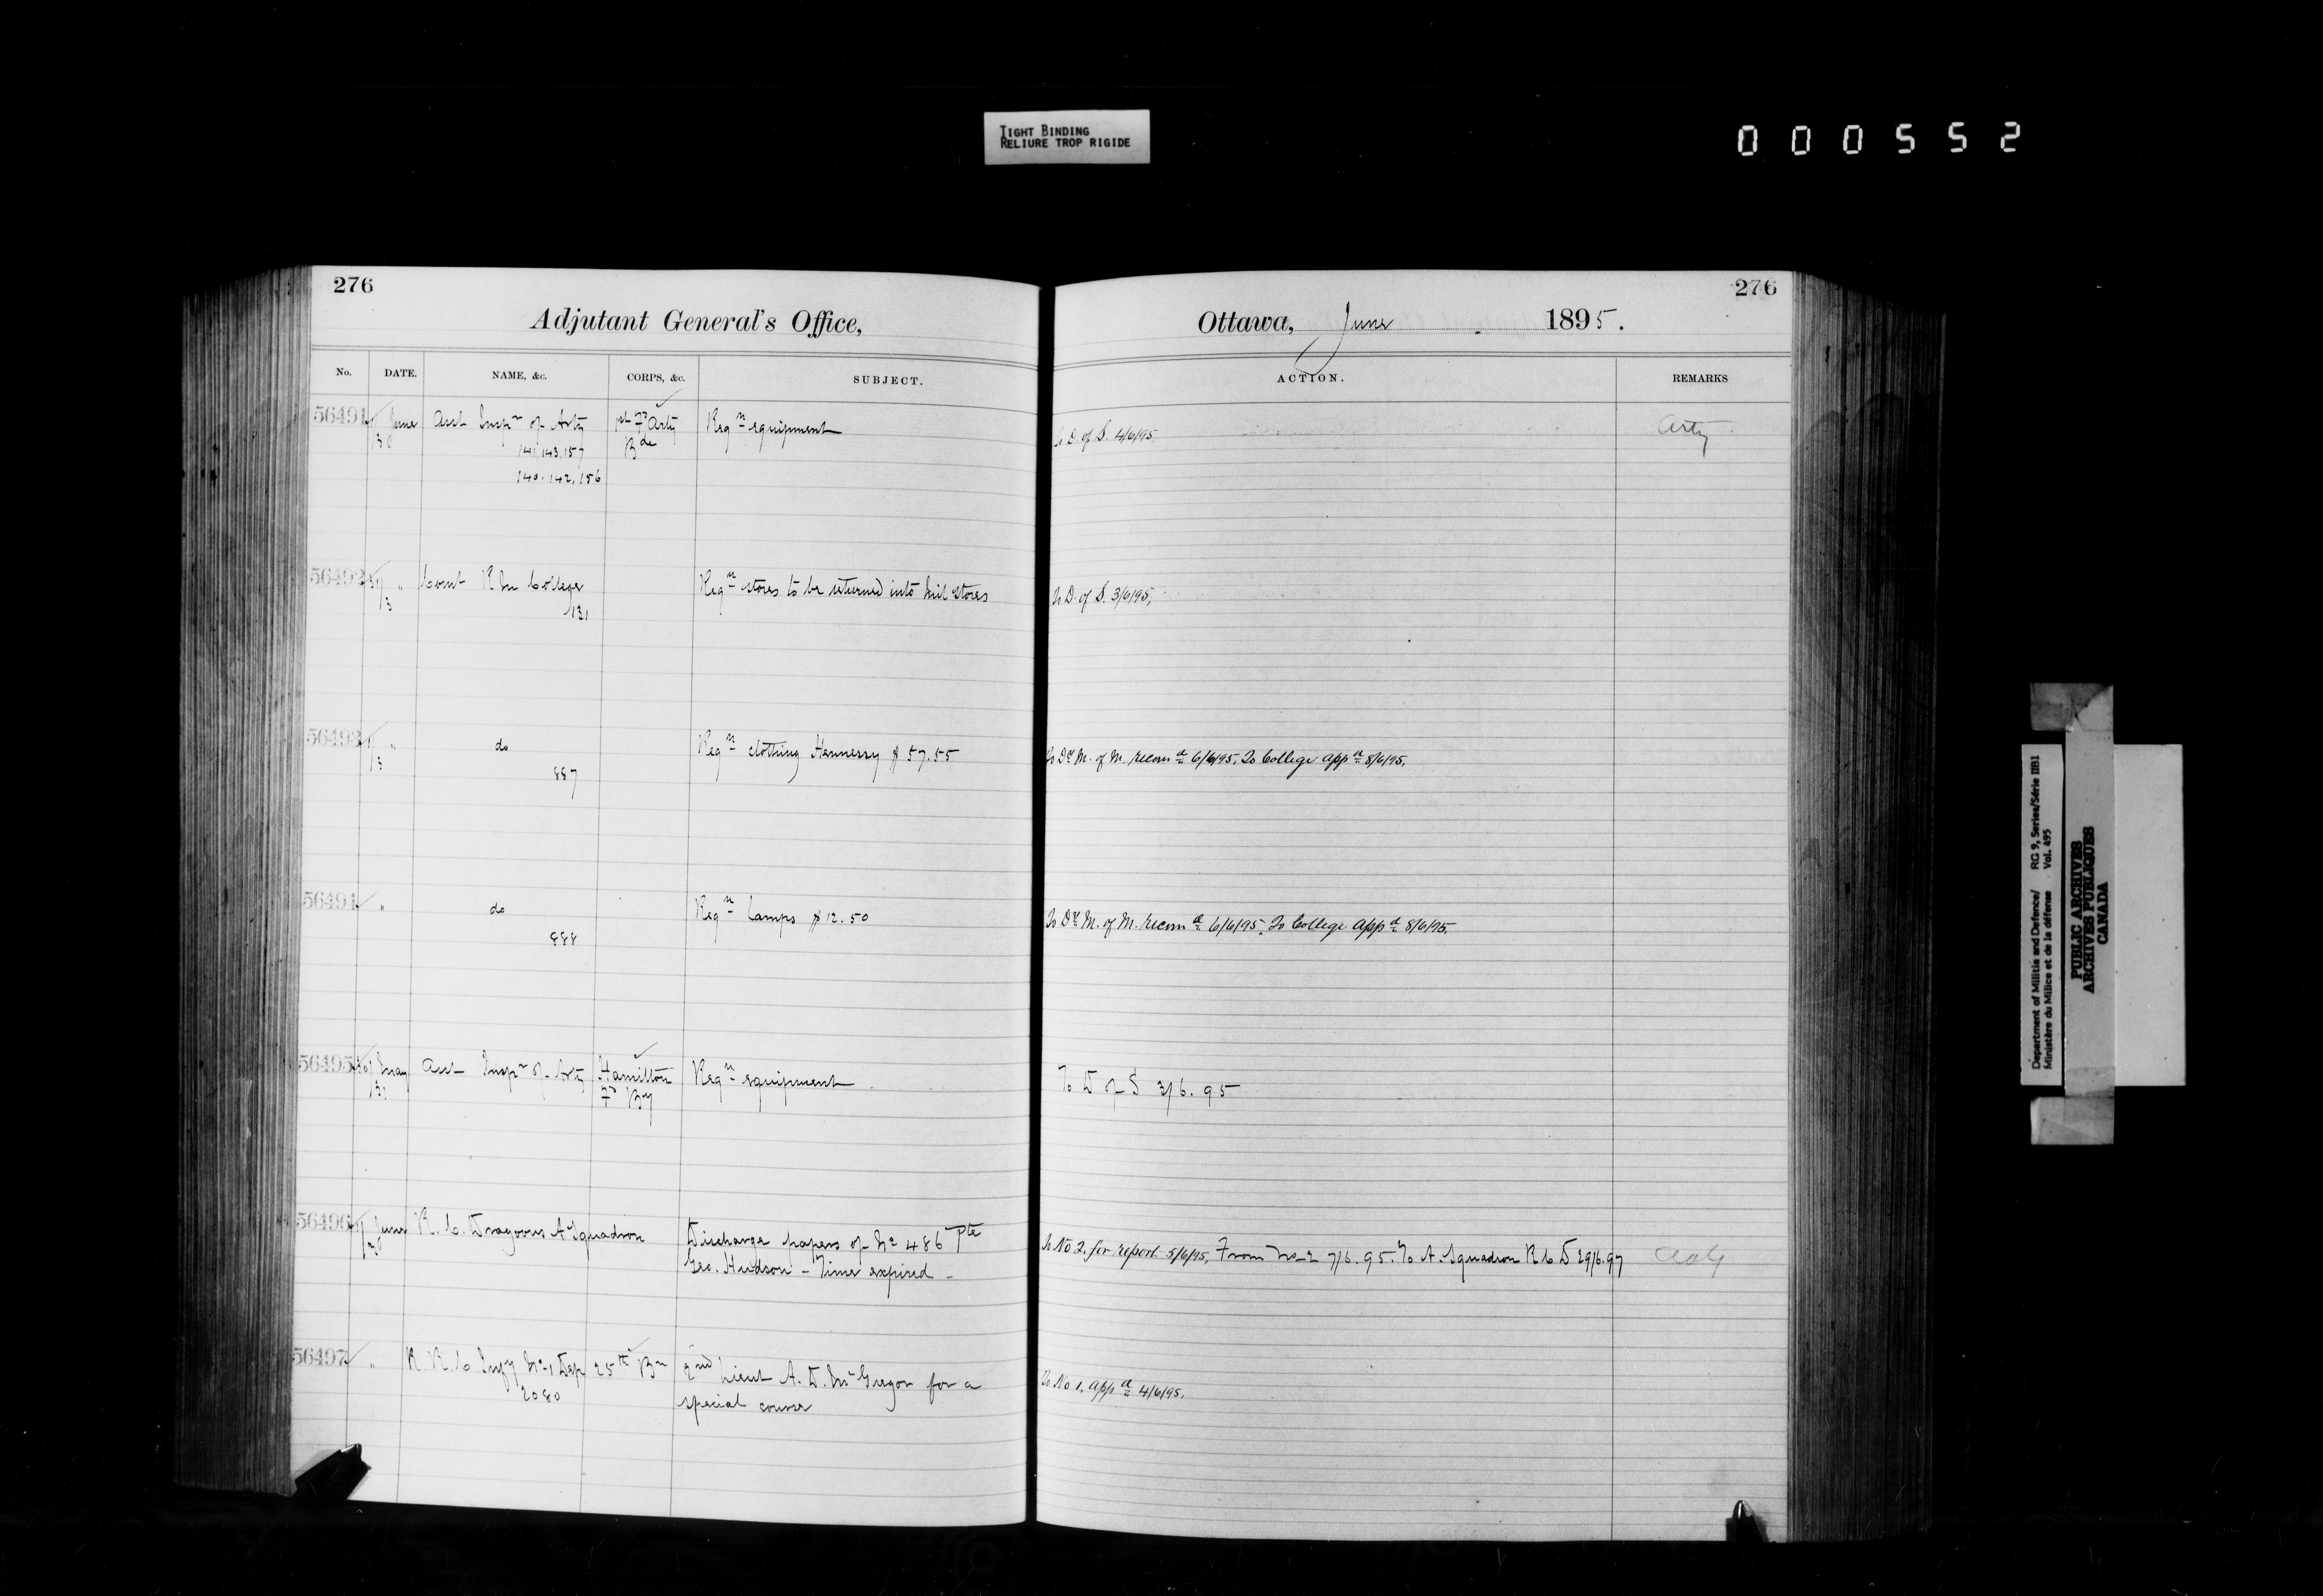 TIGHT BINDING
RELIURE TROP RIGIDE
000552
276
Adjutant General's Office,
No. DATE. NAME, &c. CORPS, &c. SUBJECT.
56491 June Asst Inspr of Arty 1st Fd Arty Reqn equipment
3 141.143.157 Bde
140.142.156
56492 " Comt R M College Reqn stores to be returned into Mil Stores
3 131
56493 " do Reqn clothing Hennessy $57.55
3 887
56494 " do Reqn lamps $12.50
888
56495 May Asst Inspr of Arty Hamilton Reqn equipment
31 Fd By
56496 June R. C. Dragoons A Squadron Discharge papers of No 486 Pte
3 Geo. Hudson - Time expired -
56497 " R. R. C Infy No 1 Dep 25th Bn 2nd Lieut A. D. McGregor for a
2080 special course
276
Ottawa, June 1895.
ACTION. REMARKS
To D. of S. 4/6/95. Arty
To D. of S. 3/6/95.
To Dy M. of M. recomd 6/6/95. To College appd 8/6/95.
To Dy M. of M. recomd 6/6/95. To College appd 8/6/95.
To D of S 3/6.95
To No 2. for report 5/6/95. From No 2 7/6.95. To A. Squadron R C D 29/6.97
To No 1. appd 4/6/95.
Department of Militia and Defence/ RG 9, Series/Série IIB1
Ministère du Milice et de la défense Vol. 495
PUBLIC ARCHIVES
ARCHIVES PUBLIQUES
CANADA